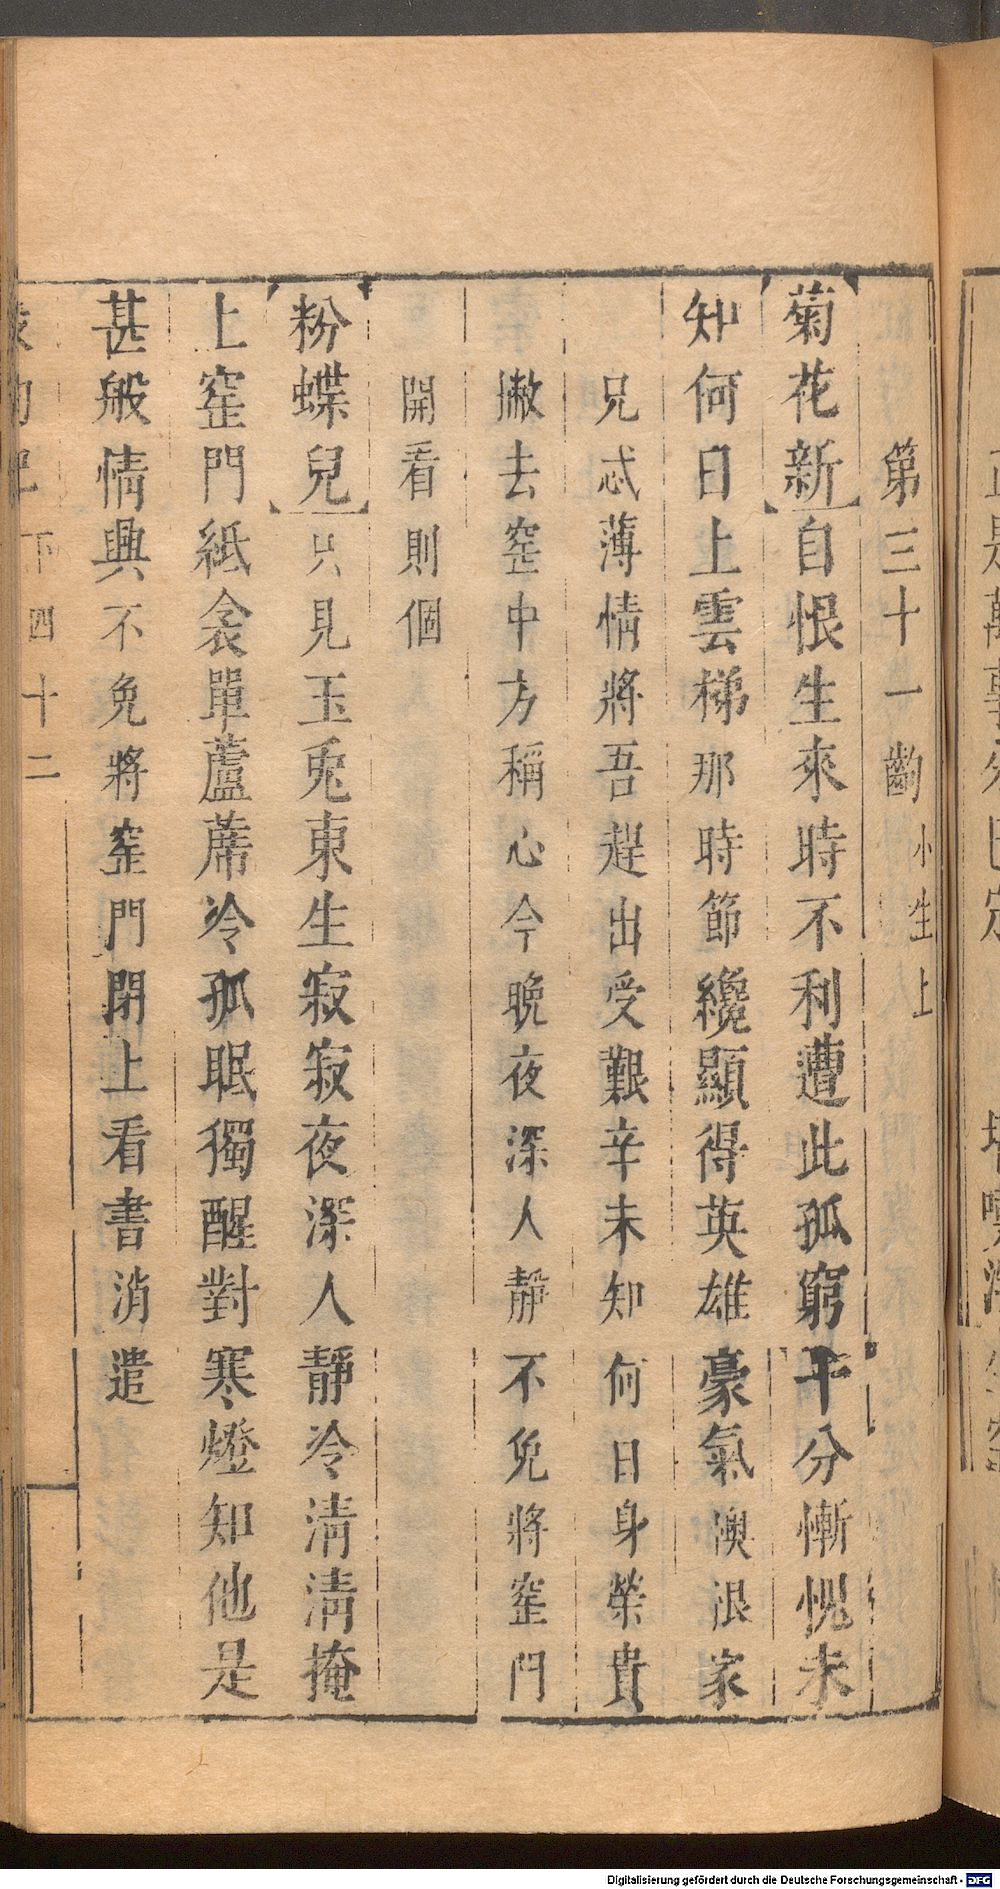 第三十一齣 小生上
菊花新 自恨生來時不利遭此孤窮千分慚愧未
知何日上雲梯那時節纔顯得英雄豪氣懊恨家
兄忒薄情將吾趕出受艱辛未知何日身榮貴
撇去窑中方稱心今晚夜深人靜不免將窑門
開看則個
粉蝶兒 只見玉兎東生寂寂夜深人靜冷清清掩
上窑門紙衾單蘆蓆冷孤眠獨醒對寒燈知他是
甚般情興不免將窑門閉上看書消遣
下 四十二
Digitalisierung gefördert durch die Deutsche Forschungsgemeinschaft - DFG